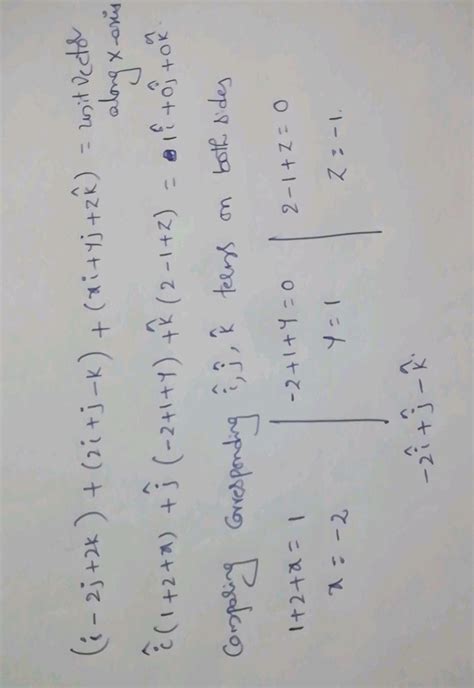 (i - 2j + 2k) + (2i + j - k) + (xi + yj + zk̂) = unit vector along x-axis
î(1+2+x) + ĵ(-2+1+y) + k̂(2-1+z) = 1î + 0ĵ + 0k̂.
Comparing corresponding î, ĵ, k̂ terms on both sides
1+2+x = 1 | -2+1+y = 0 | 2-1+z = 0
x = -2 | y = 1 | z = -1.
-2î + ĵ - k̂.